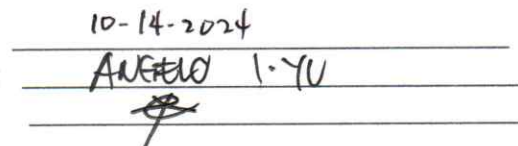 10-14-2024
ANGELO I. YU